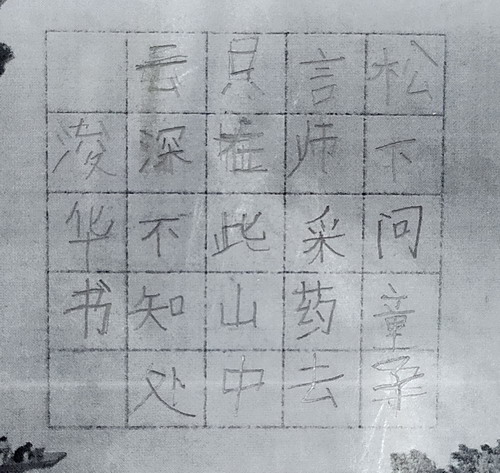 松下问童子
言师采药去
只在此山中
云深不知处
浚华书